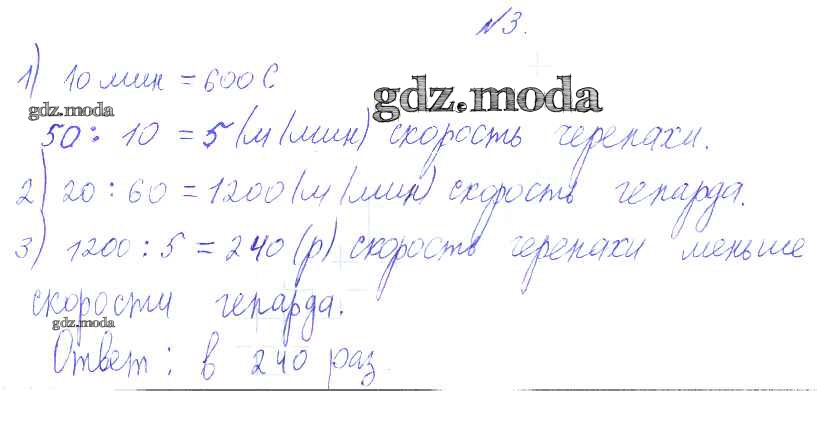 №3.
1) 10 мин = 600 С
gdz.moda
gdz.moda
50 : 10 = 5 (м/мин) скорость черепахи.
2) 20 : 60 = 1200 (м/мин) скорость гепарда.
3) 1200 : 5 = 240 (р) скорость черепахи меньше
скорости гепарда.
gdz.moda
Ответ: в 240 раз